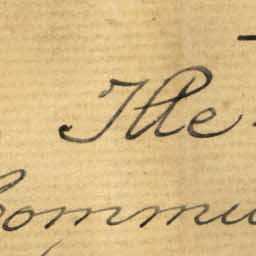 The
Commu